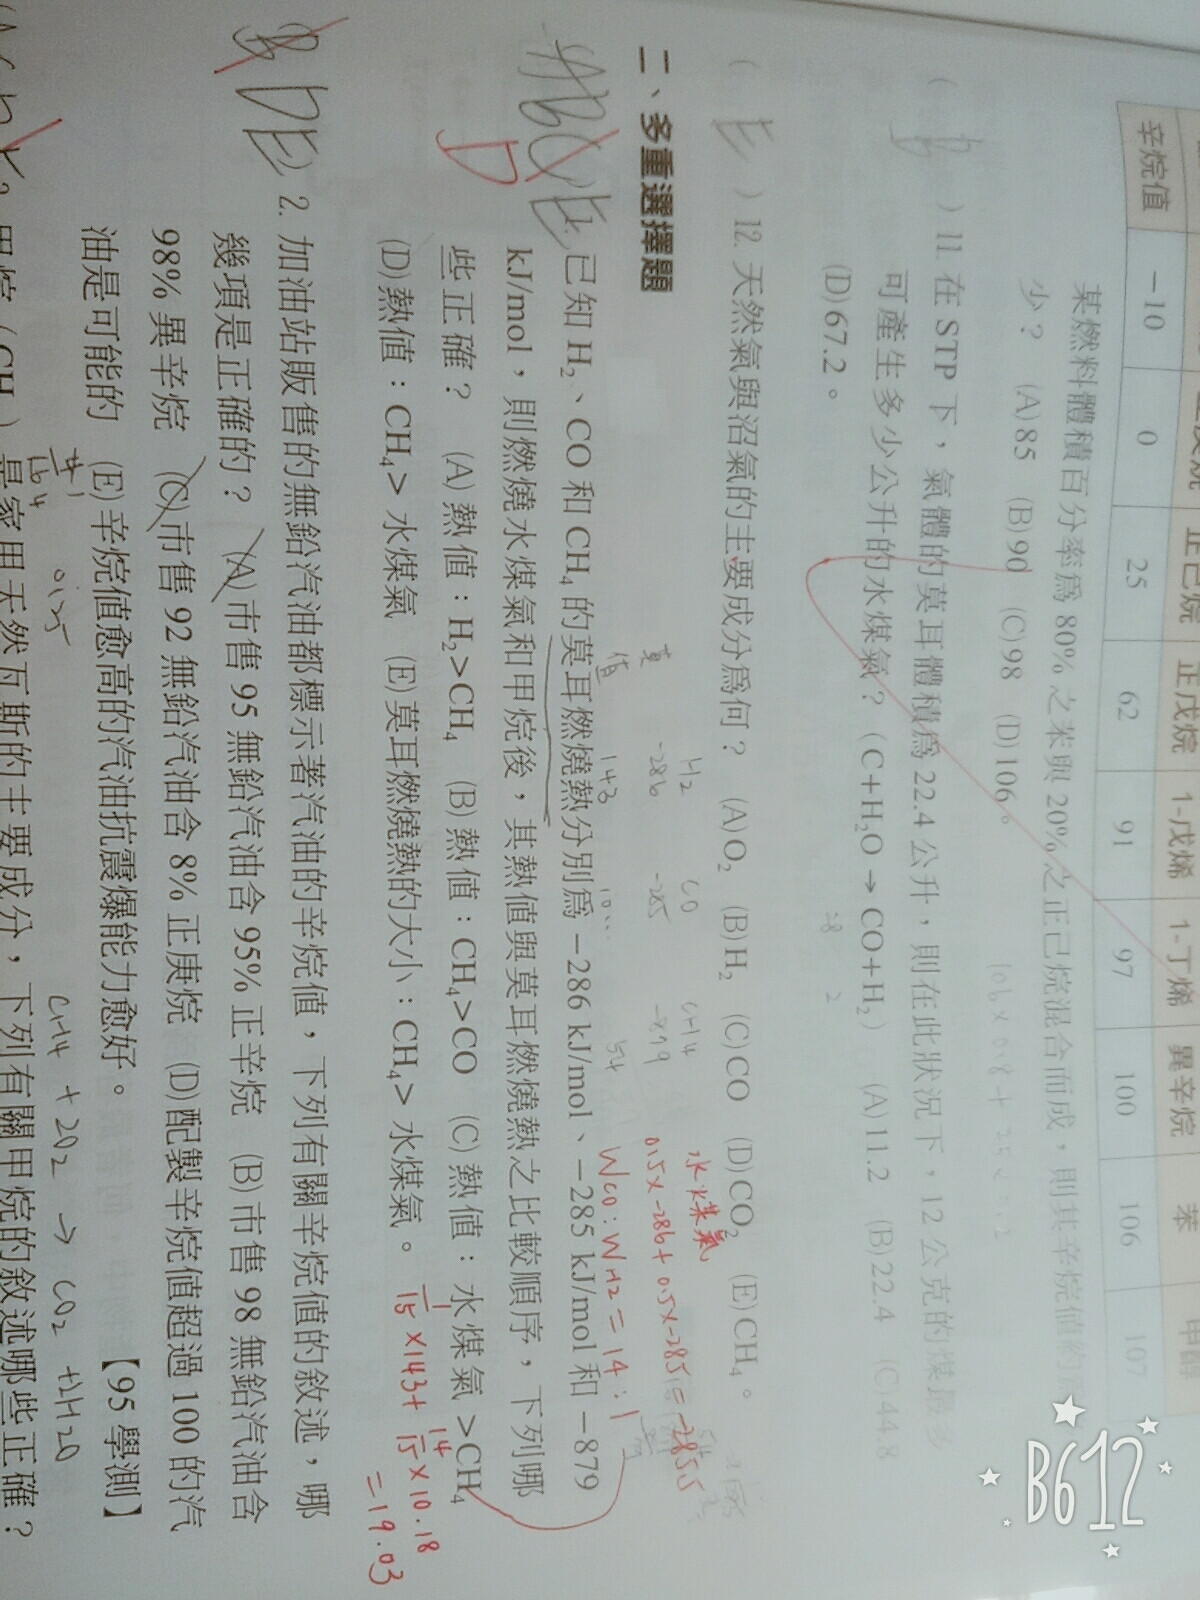 辛烷值 -10 0 25 62 91 97 100 106 107
正己烷 正戊烷 1-戊烯 1-丁烯 異辛烷 苯
某燃料體積百分率為 80% 之苯與 20% 之正己烷混合而成，則其辛烷值約為
少？ (A)85 (B)90 (C)98 (D)106。
( b ) 11. 在 STP 下，氣體的莫耳體積為 22.4 公升，則在此狀況下，12 公克的煤最多
可產生多少公升的水煤氣？（C+H₂O→CO+H₂） (A)11.2 (B)22.4 (C)44.8
(D)67.2。
( E ) 12. 天然氣與沼氣的主要成分為何？ (A)O₂ (B)H₂ (C)CO (D)CO₂ (E)CH₄。
二、多重選擇題
H2 CO CH4 水煤氣
莫 -286 -285 -879 0.5×-286+0.5×-285=-285.5
值 143 10... 54 WCO:WH2=14:1
已知 H₂、CO 和 CH₄ 的莫耳燃燒熱分別為 -286 kJ/mol、-285 kJ/mol 和 -879
kJ/mol，則燃燒水煤氣和甲烷後，其熱值與莫耳燃燒熱之比較順序，下列哪
些正確？ (A)熱值：H₂>CH₄ (B)熱值：CH₄>CO (C)熱值：水煤氣>CH₄
(D)熱值：CH₄>水煤氣 (E)莫耳燃燒熱的大小：CH₄>水煤氣。
1/15×143+14/15×10.18
=19.03
2. 加油站販售的無鉛汽油都標示著汽油的辛烷值，下列有關辛烷值的敘述，哪
幾項是正確的？ (A)市售 95 無鉛汽油含 95% 正辛烷 (B)市售 98 無鉛汽油含
98% 異辛烷 (C)市售 92 無鉛汽油含 8% 正庚烷 (D)配製辛烷值超過 100 的汽
油是可能的 (E)辛烷值愈高的汽油抗震爆能力愈好。 【95 學測】
CH4 + 2O2 → CO2 + 2H2O
是家用天然瓦斯的主要成分，下列有關甲烷的敘述哪些正確？
B612